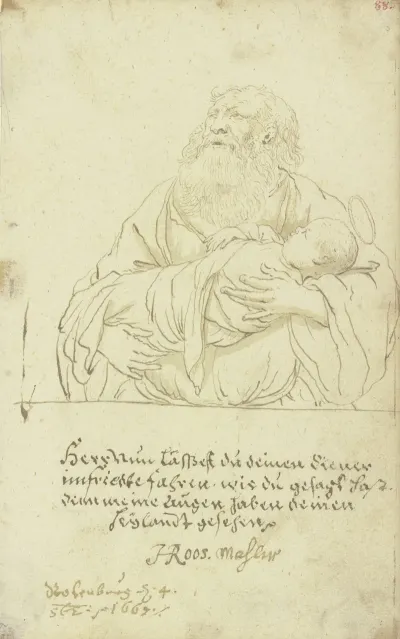 88.
Herr Nun Lässest du deinen diener
im fride fahren. wie du gesagt hast.
denn meine augen haben deinen
heylandt gesehen
JRoos. Mahler
4.
1669.